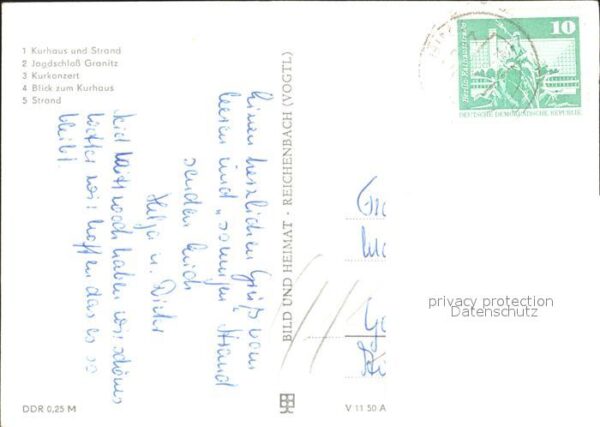 1 Kurhaus und Strand
2 Jagdschloß Granitz
3 Kurkonzert
4 Blick zum Kurhaus
5 Strand
Einen herzlichen Gruß vom
leeren und „sonnigen" Strand
senden Euch
Helga u. Dieter
Seid heute noch haben wir schönes
Wetter wir hoffen das es so
bleibt.
BILD UND HEIMAT · REICHENBACH (VOGTL)
10
Berlin, Rathausstraße
DEUTSCHE DEMOKRATISCHE REPUBLIK
privacy protection
Datenschutz
DDR 0,25 M
V 11 50 A